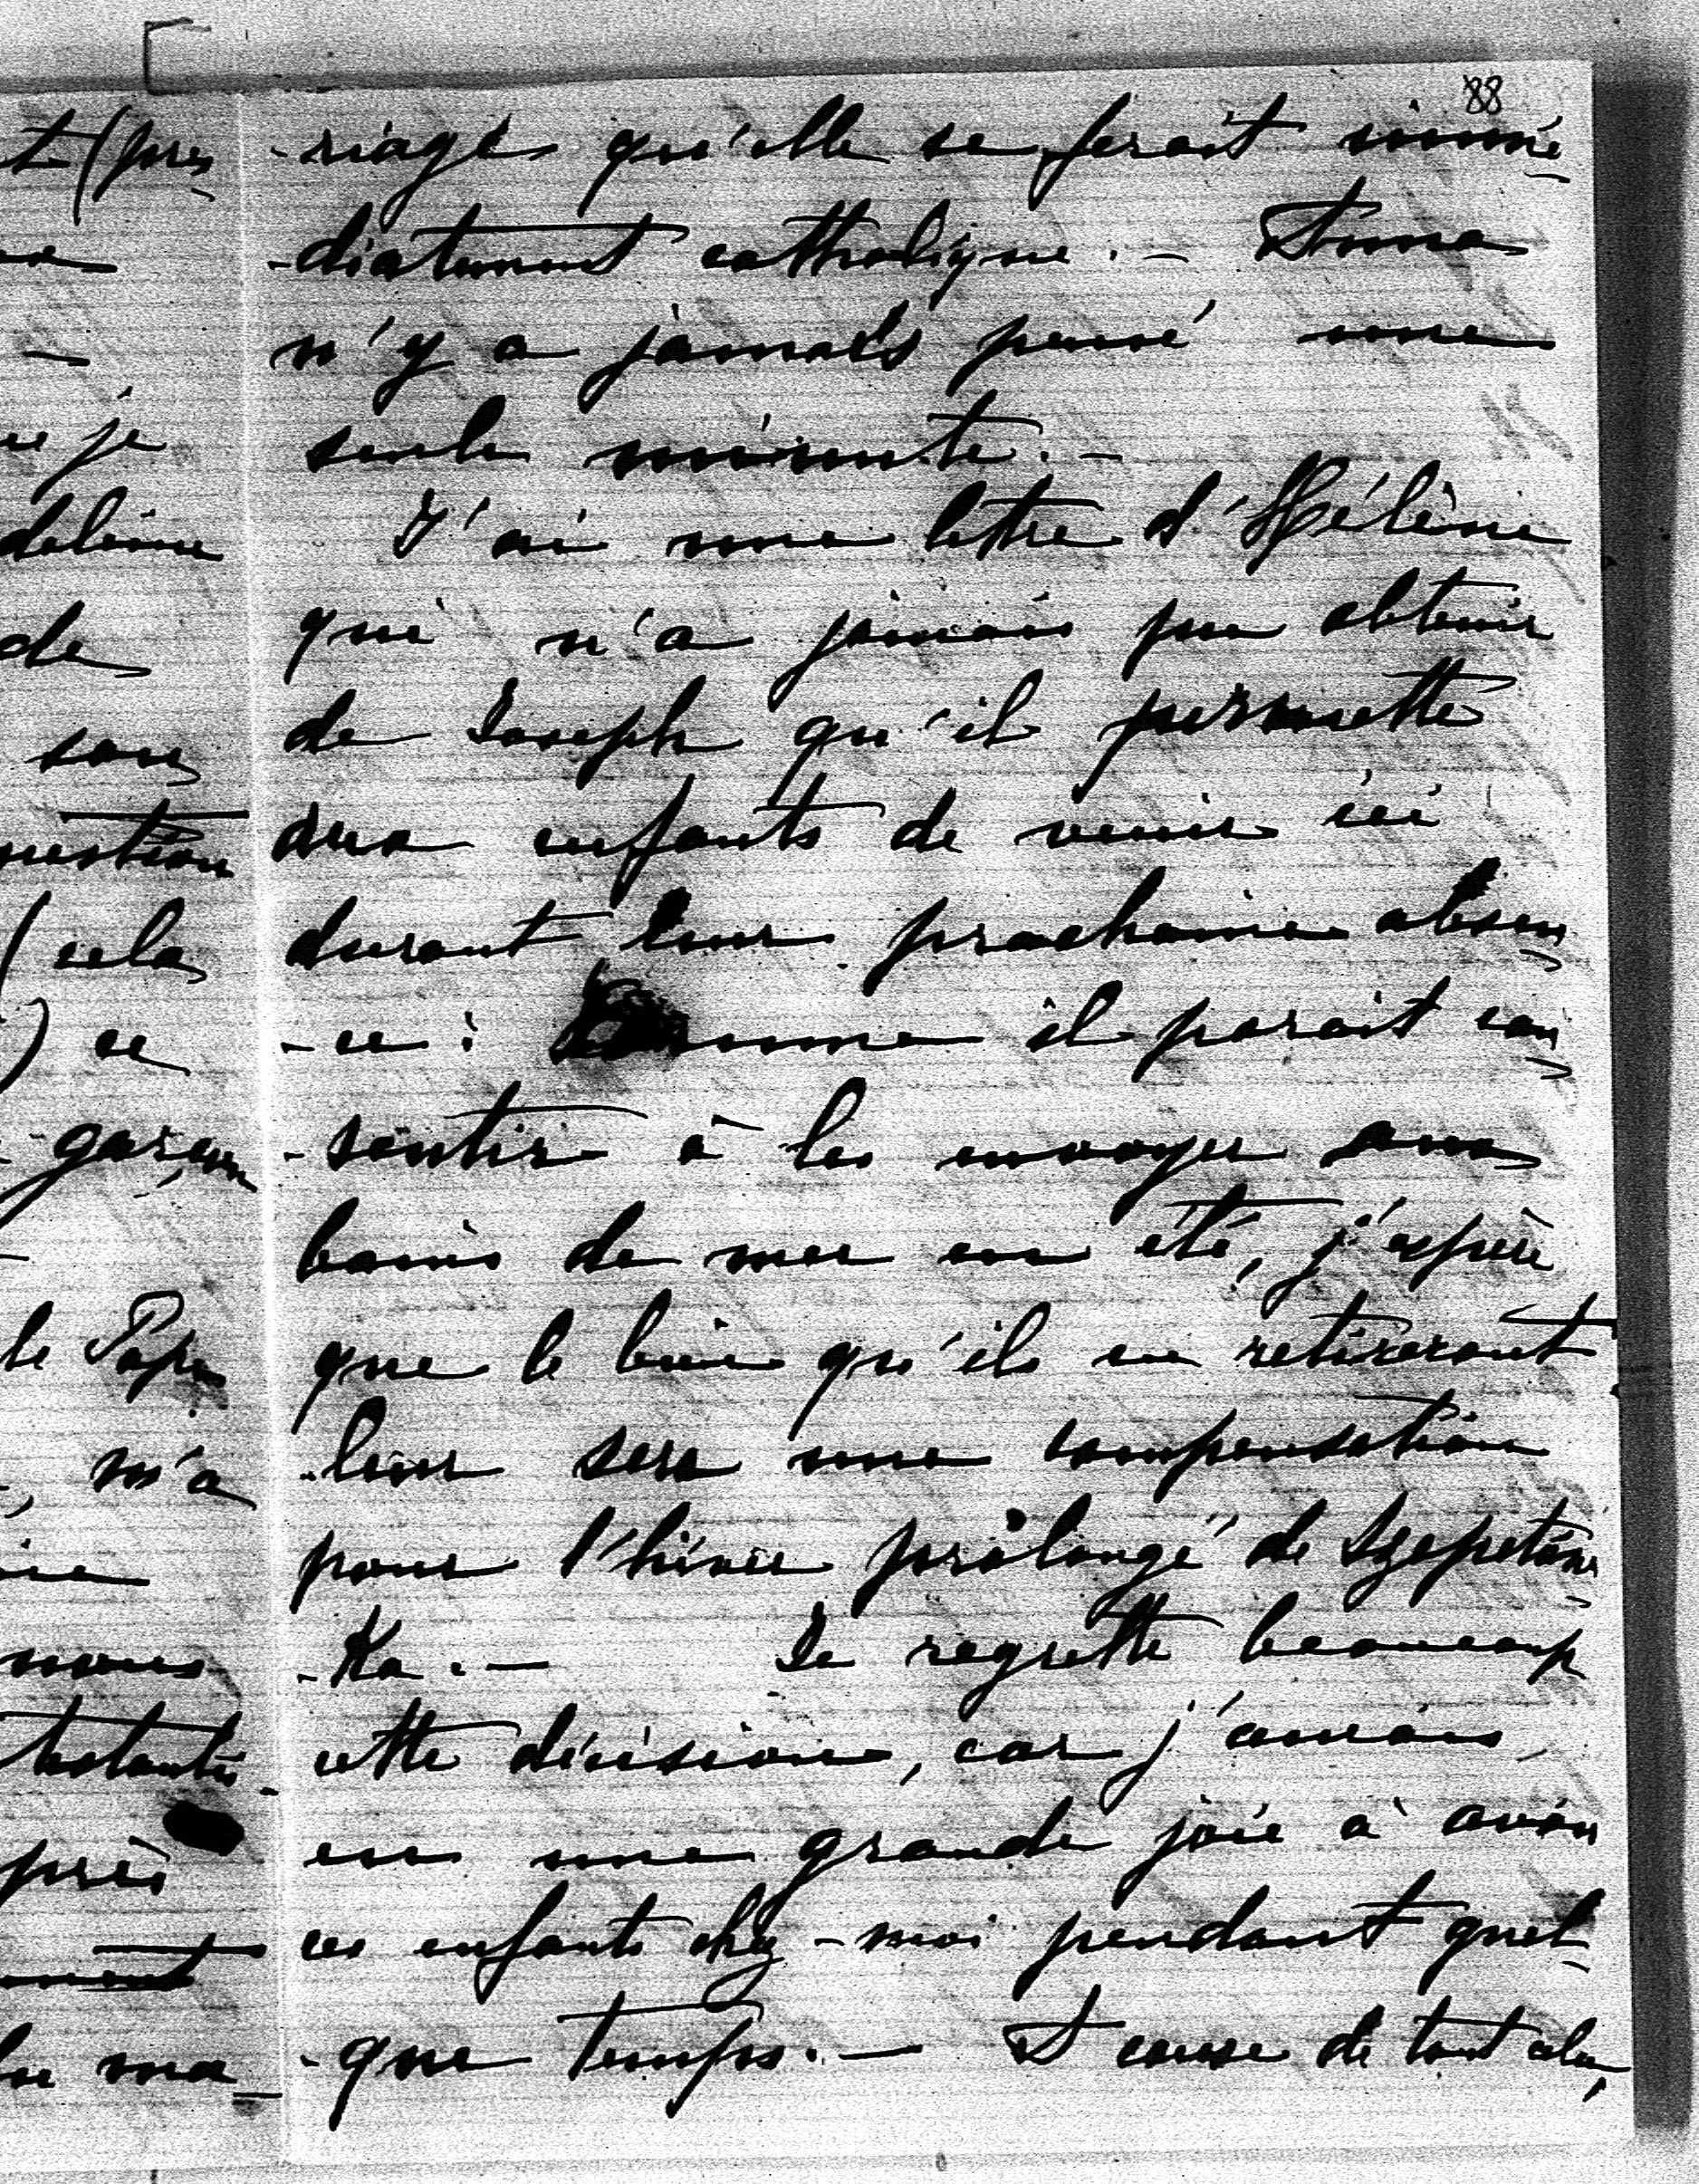 88
-riage qu'elle se ferait immé
-diatement catholique. — Anna
n'y a jamais pensé une
seule minute. —
J'ai une lettre d'Hélène
qui n'a jamais pu obtenir
de Joseph qu'il permette
aux enfants de venir ici
durant leur prochaine absen
-ce : Comme il parait con
-sentir à les envoyer aux
bains de mer en été, j'espère
que le bien qu'ils en retireront
leur sera une compensation
pour l'hiver prolongé de Szepetow
-Ka. — Je regrette beaucoup
cette décision, car j'aurais
eu une grande joie à avoir
ces enfants chez-moi pendant quel
-que temps. — A cause de tout cela,
t (près
je
deleine
de
son
uestion
(cela
) ce
garçon
le Pape
, m'a
nous
testantis-
près
ment
ma-